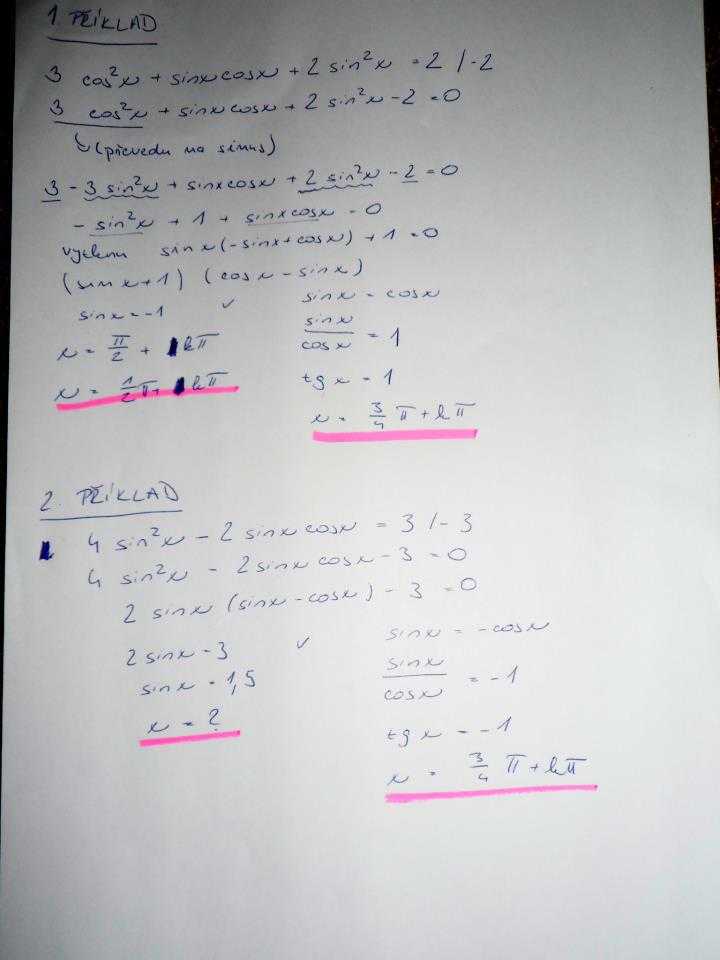 1. PŘÍKLAD
3 cos²x + sinxcosx + 2 sin²x = 2 /-2
3 cos²x + sinxcosx + 2 sin²x - 2 = 0
↳ (převedu na sinus)
3 - 3 sin²x + sinxcosx + 2 sin²x - 2 = 0
- sin²x + 1 + sinxcosx = 0
vytknu sinx(-sinx+cosx) + 1 = 0
(sinx+1) (cosx-sinx)
sinx = -1 ✓
x = π/2 + kπ
x = 1/2 π + kπ
sinx = cosx
sinx/cosx = 1
tg x = 1
x = 3/4 π + kπ
2. PŘÍKLAD
4 sin²x - 2 sinxcosx = 3 /-3
4 sin²x - 2 sinxcosx - 3 = 0
2 sinx (sinx-cosx) - 3 = 0
2 sinx = 3 ✓
sinx = 1,5
x = ?
sinx = -cosx
sinx/cosx = -1
tg x = -1
x = 3/4 π + kπ